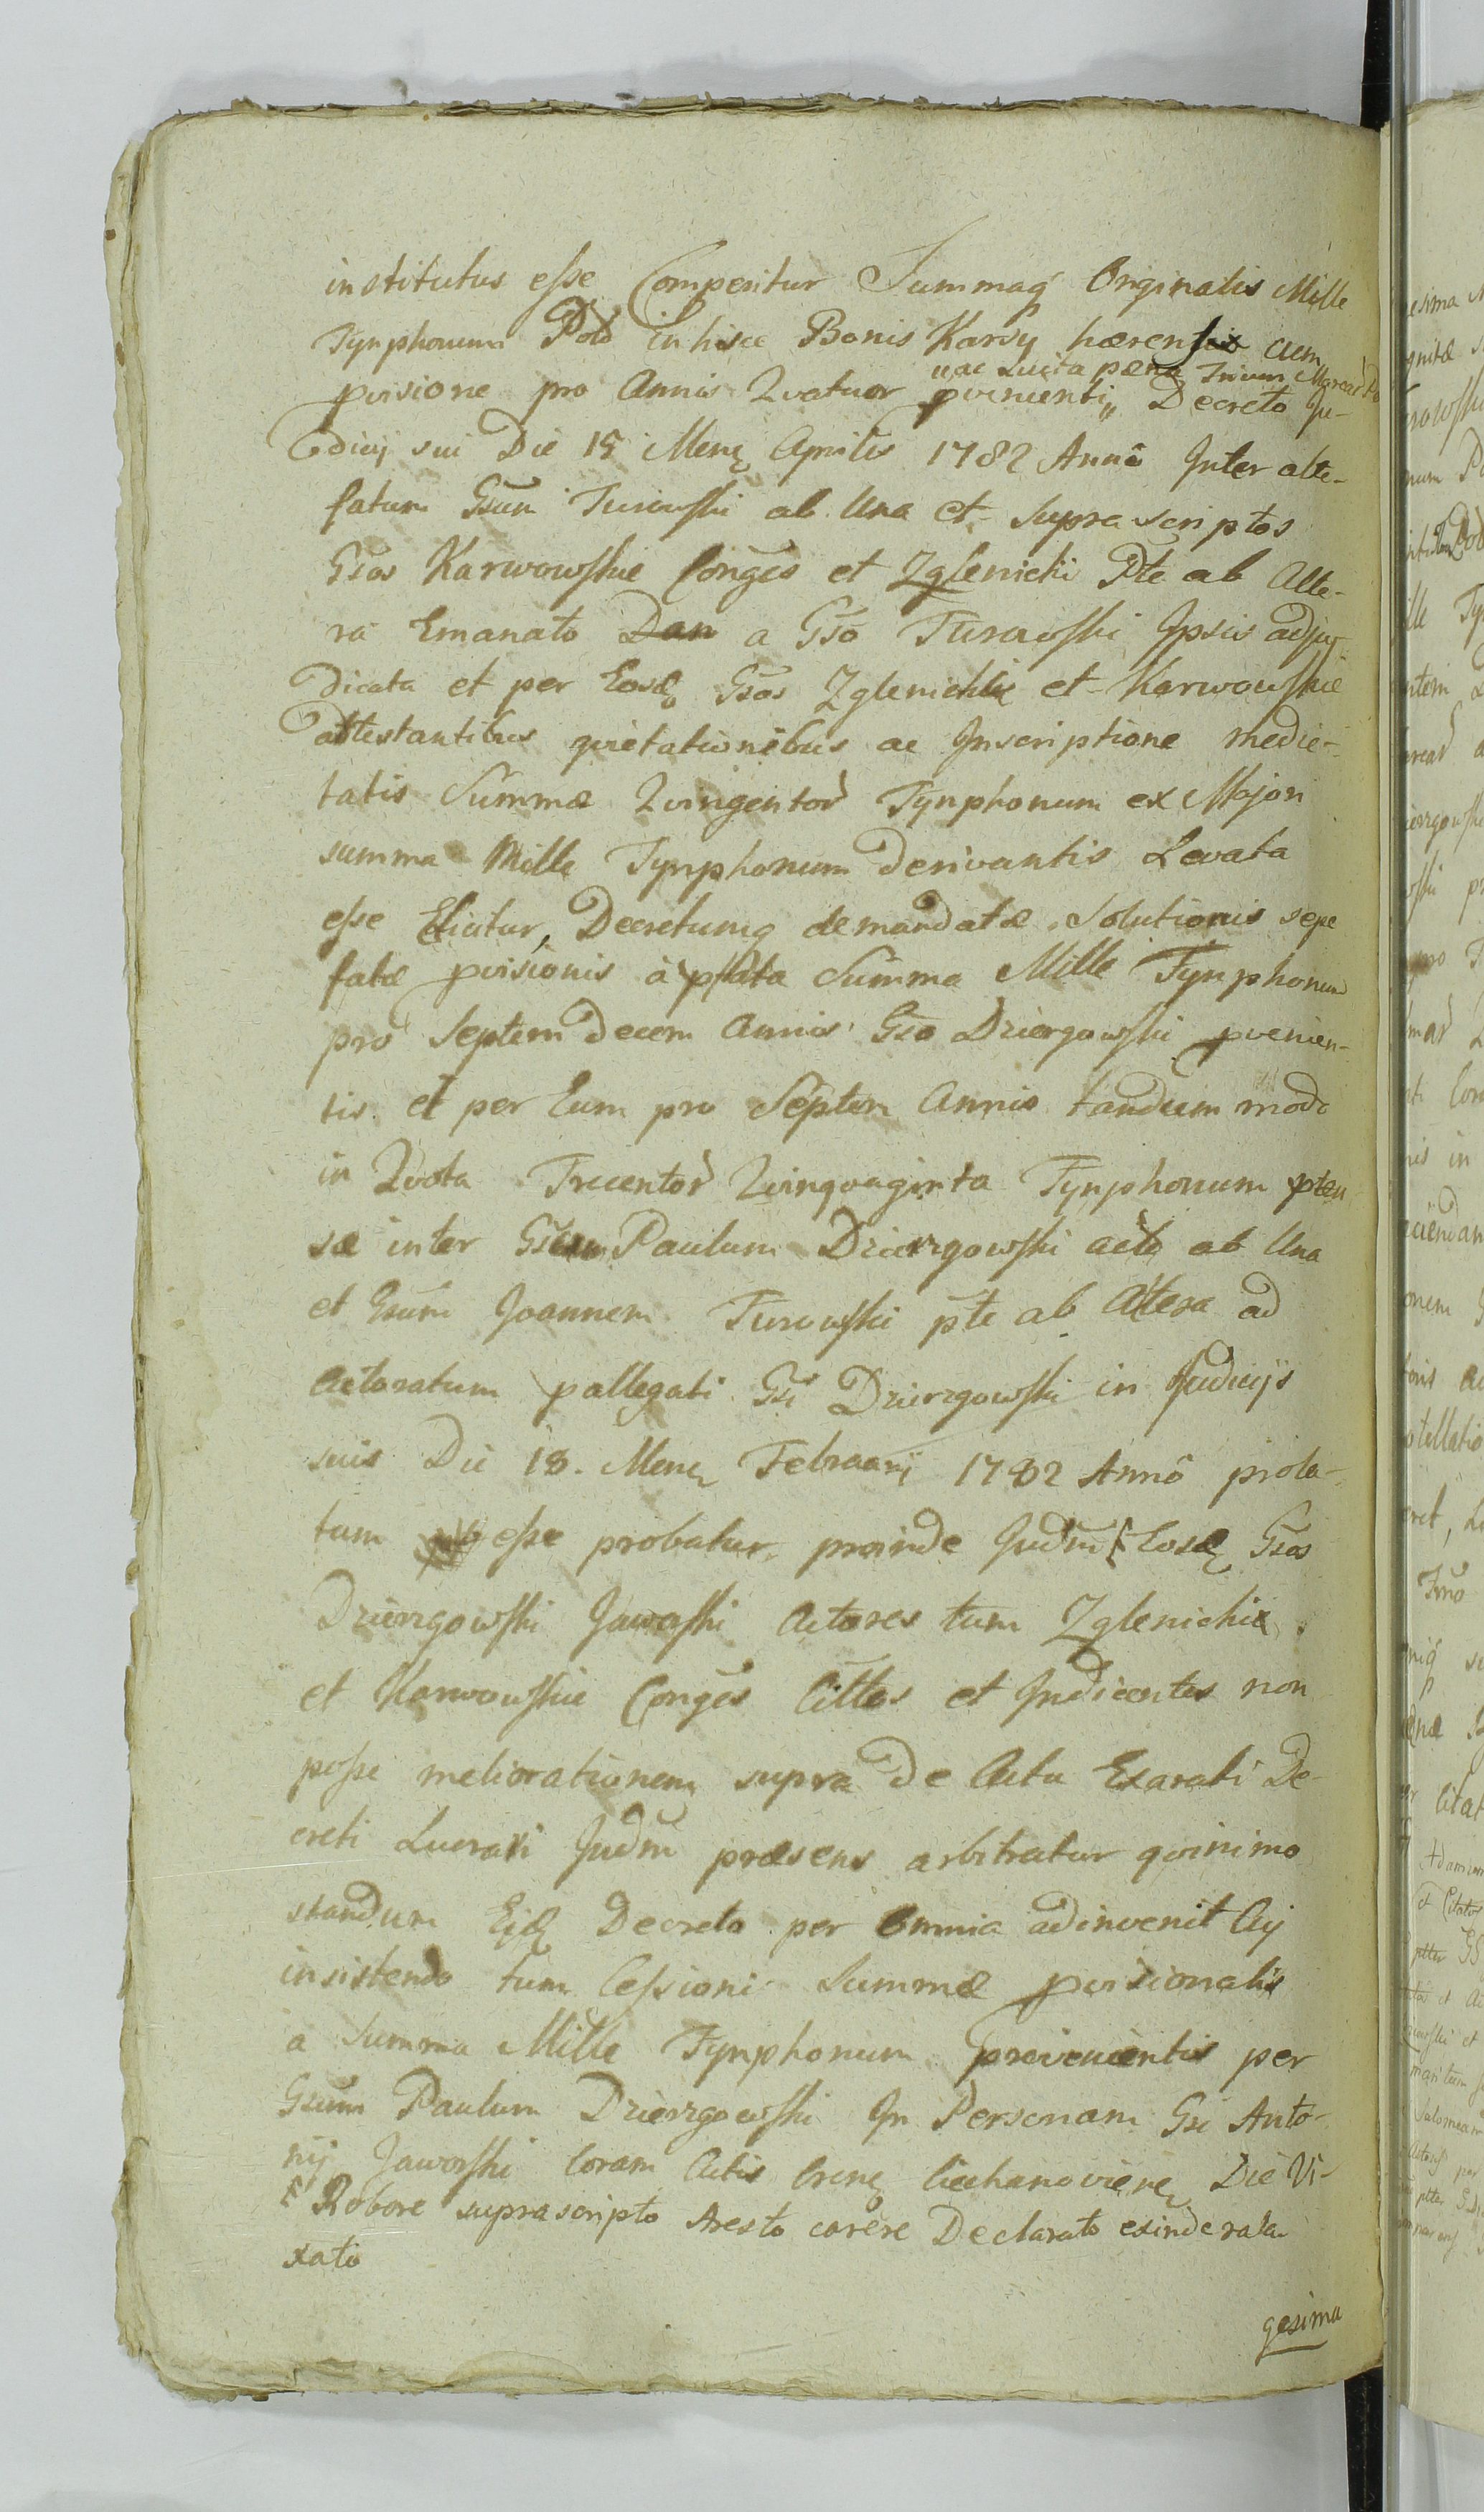 institutus esse Comperitur Summaq Originalis Mille
Tynphonum Polo in hisce Bonis Karsy hærentis cum
„ac Luita pæna Trium Marcar Po
pvisione pro Annis Qvatuor pvenienti„ Decreto Ju-
dicij sui Die 15 Menq Aprilis 1782 Annô Inter alte-
fatum Gsum Turowski ab Una et supra scriptos
Gsos Karwowskie Conges et Zglenicki Pte ab Alte-
ra Emanato Dan a Gso Turowski Ipsis adju-
dicata et per Eosd Gsos Zglenickie et Karwowskie
attestantibus qvietationibus ac Inscriptione medie-
tatis Summæ Qvingentor Tynphonum ex Majori
summa Mille Tynphonum derivantis Levata
esse Elicitur, Decretumq demandatæ Solutionis sepe
fatæ pvisionis à pfata Summa Mille Tynphonum
pro Septem decem Annis Gso Dziergowski pvenien-
tis et per Eum pro Septem Annis tandum modo
in Qvota Trecentor Qvinqvaginta Tynphonum pten
sæ inter Gsum Paulum Dzierzgowski acto ab Una
et Gsum Joannem Turowski pte ab Altera ad
Actoratum pallegati Gsi Dzierzgowski in Judicijs
suis Die 18. Menq Februarij 1782 Annô prola-
tum esse probatur. proinde Judm [ Eosd Gsos
Dzierzgowski Jaworski Actores tum Zglenickie
et Karwowskie Conges Cittos et Indicentes non
posse meliorationem supra de Actu Exarati De-
creti Lucrari Judm præsens arbitratur qvinimo
standum Ejd Decreto per Omnia adinvenit Cuj
insistendo tum Cessioni Summæ pvisionalis
a Summa Mille Tynphonum provenientis per
Gsum Paulum Dzierzgowski In Personam Gsi Anto-
nij Jaworski Coram Actis Crenq Ciechanovienq Die Vi-
[ Robore suprascripto Aresto carere Declarato exinde rala-
xato
gesima